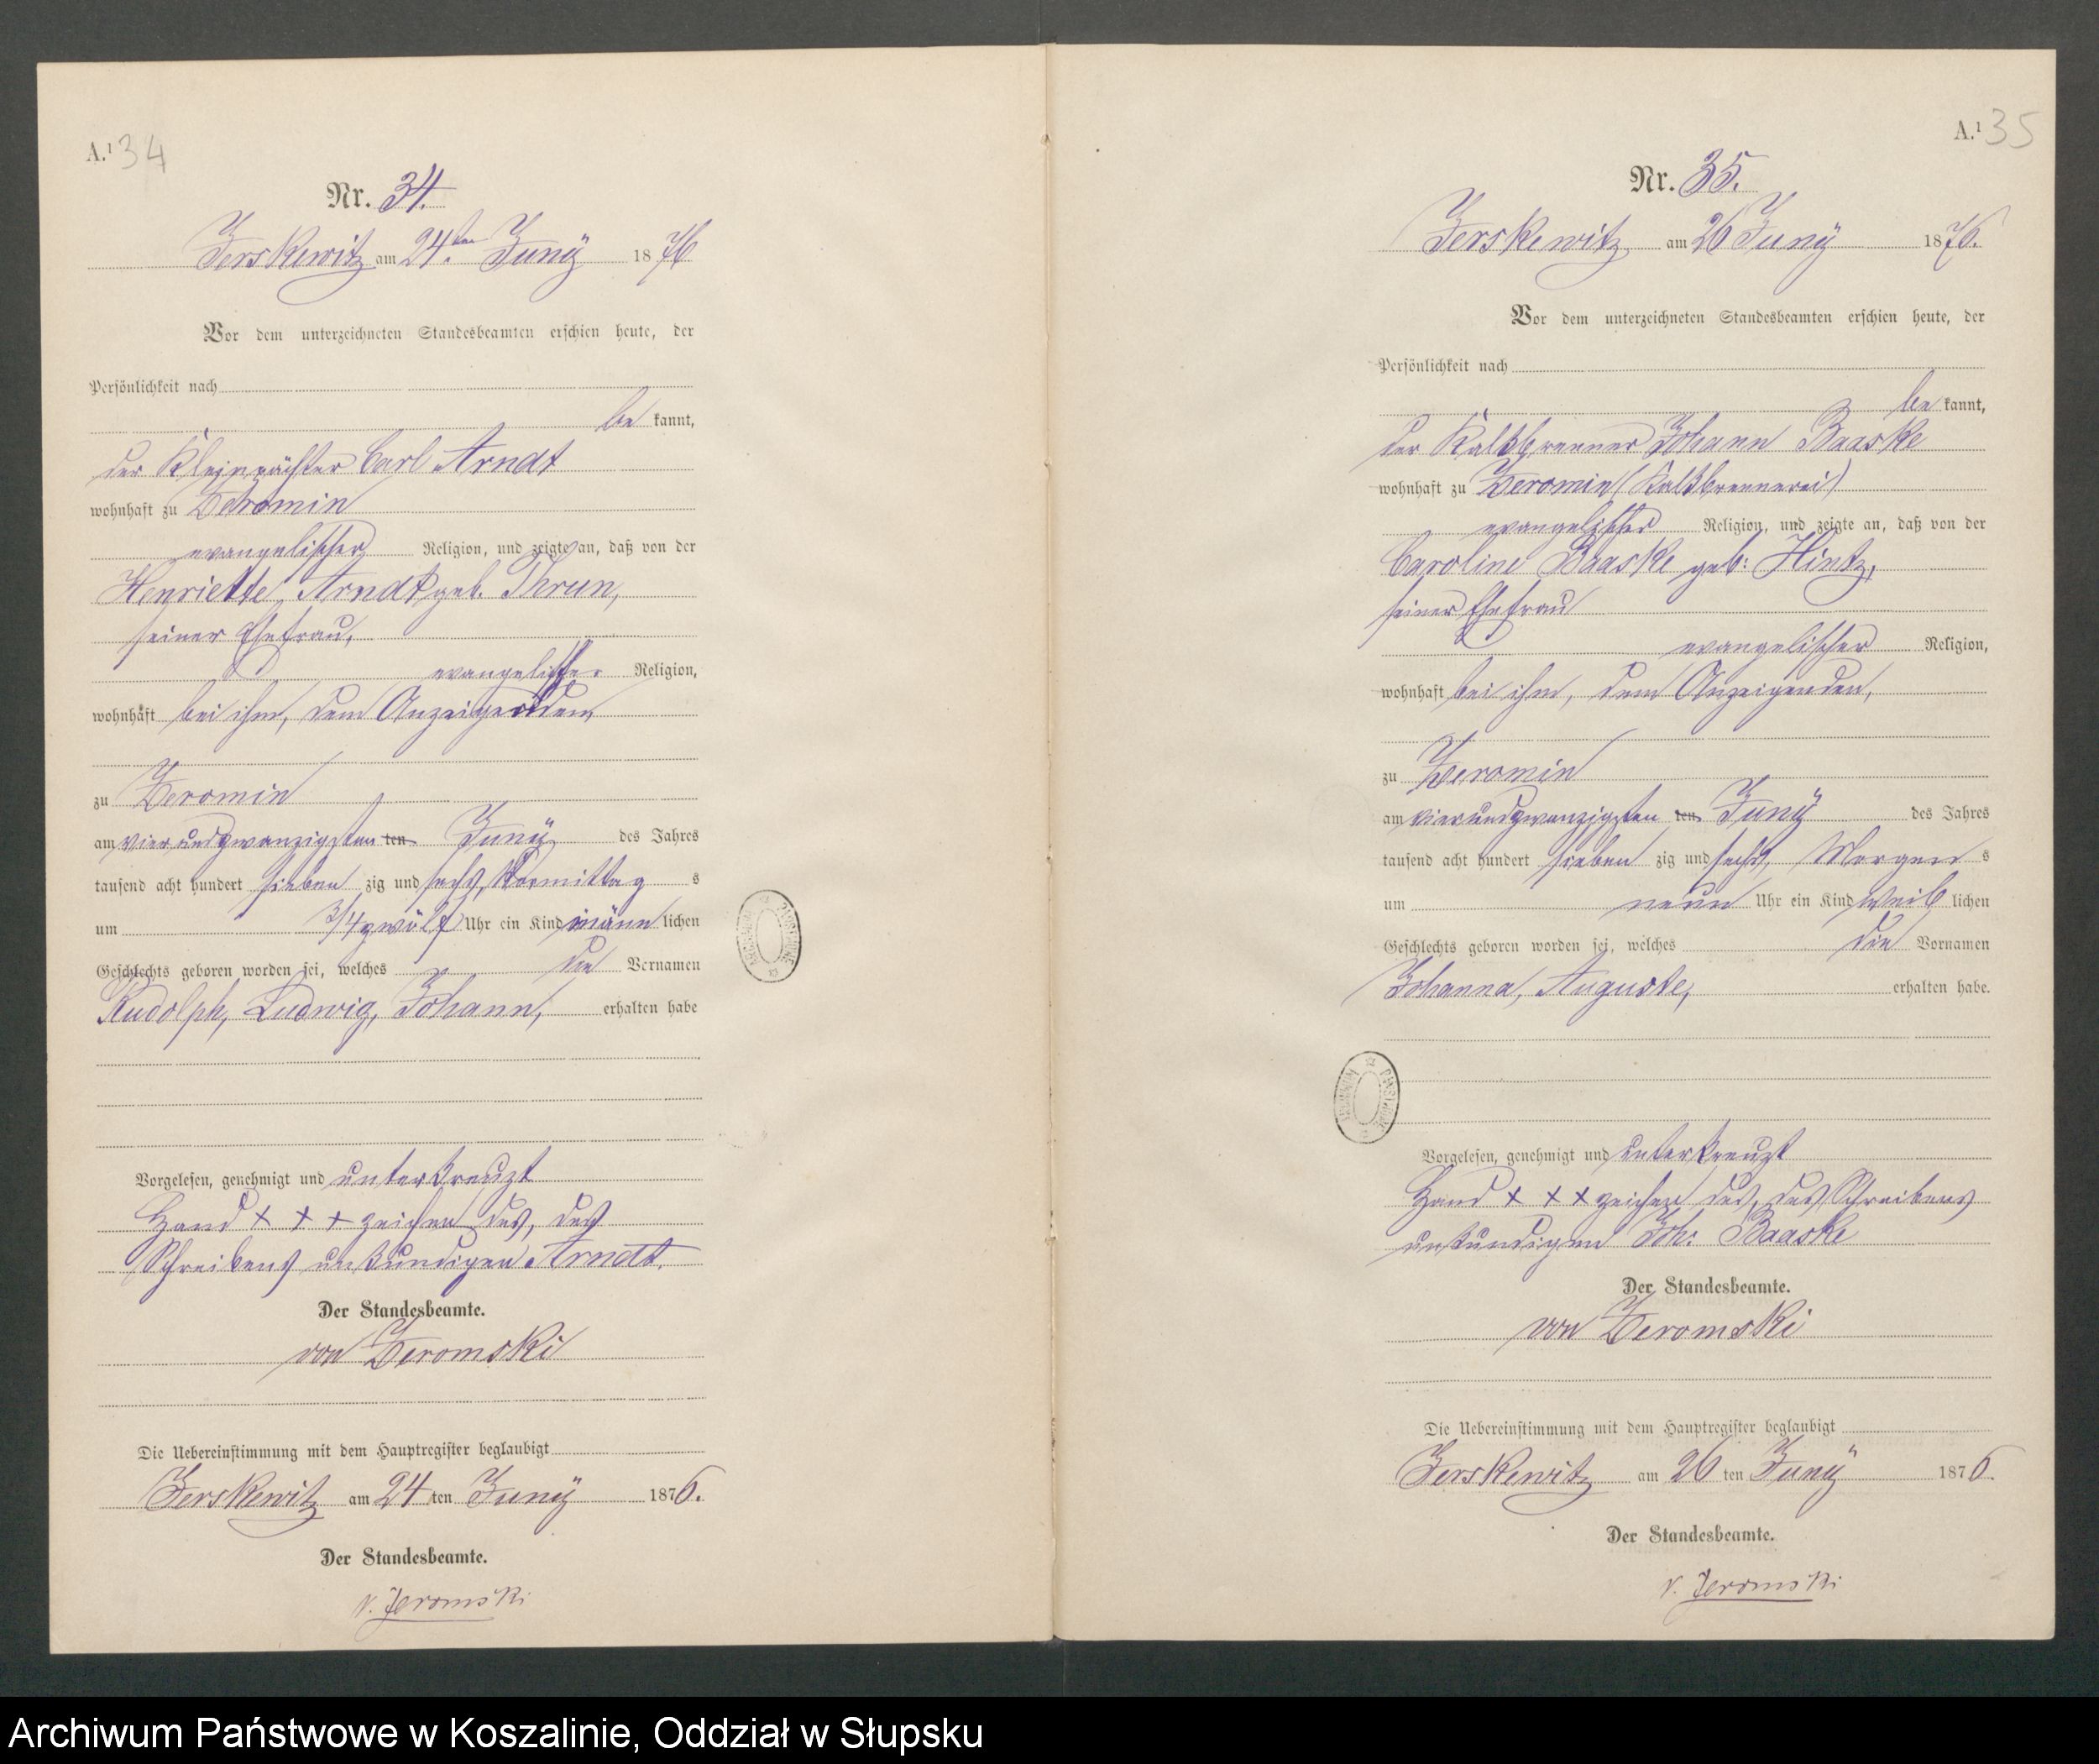 A.¹ 34
Nr. 34.
Jerskewitz am 24ten Juny 1876
Vor dem unterzeichneten Standesbeamten erschien heute, der
Persönlichkeit nach
be kannt,
der Kleinpächter Carl Arndt
wohnhaft zu Zeromin
evangelischer Religion, und zeigte an, daß von der
Henriette Arndt geb. Thrun,
seiner Ehefrau,
evangelischer Religion,
wohnhaft bei ihm, dem Anzeigenden,
zu Zeromin
am vierundzwanzigsten ten Juny des Jahres
tausend acht hundert sieben zig und sechs, Vormittag s
um 3/4 zwölf Uhr ein Kind männ lichen
Geschlechts geboren worden sei, welches die Vornamen
Rudolph, Ludwig, Johann, erhalten habe
Vorgelesen, genehmigt und unterkreuzt
Hand + + + zeichen des, des
Schreibens unkundigen Arndt.
Der Standesbeamte.
von Zeromski
Die Uebereinstimmung mit dem Hauptregister beglaubigt
Jerskewitz am 24 ten Juny 1876.
Der Standesbeamte.
v. Zeromski
A.¹ 35
Nr. 35.
Jerskewitz am 26 Juny 1876.
Vor dem unterzeichneten Standesbeamten erschien heute, der
Persönlichkeit nach
be kannt,
der Kalkbrenner Johann Baaske
wohnhaft zu Zeromin (Kalkbrennerei)
evangelischer Religion, und zeigte an, daß von der
Caroline Baaske geb: Hintz,
seiner Ehefrau
evangelischer Religion,
wohnhaft bei ihm, dem Anzeigenden,
zu Zeromin
am vierundzwanzigsten ten Juny des Jahres
tausend acht hundert sieben zig und sechs, Morgen s
um neun Uhr ein Kind weib lichen
Geschlechts geboren worden sei, welches die Vornamen
Johanna, Auguste, erhalten habe.
Vorgelesen, genehmigt und unterkreuzt
Hand + + + zeichen des, des Schreibens
unkundigen Joh: Baaske
Der Standesbeamte.
von Zeromski
Die Uebereinstimmung mit dem Hauptregister beglaubigt
Jerskewitz am 26 ten Juny 1876.
Der Standesbeamte.
v. Zeromski
Archiwum Państwowe w Koszalinie, Oddział w Słupsku